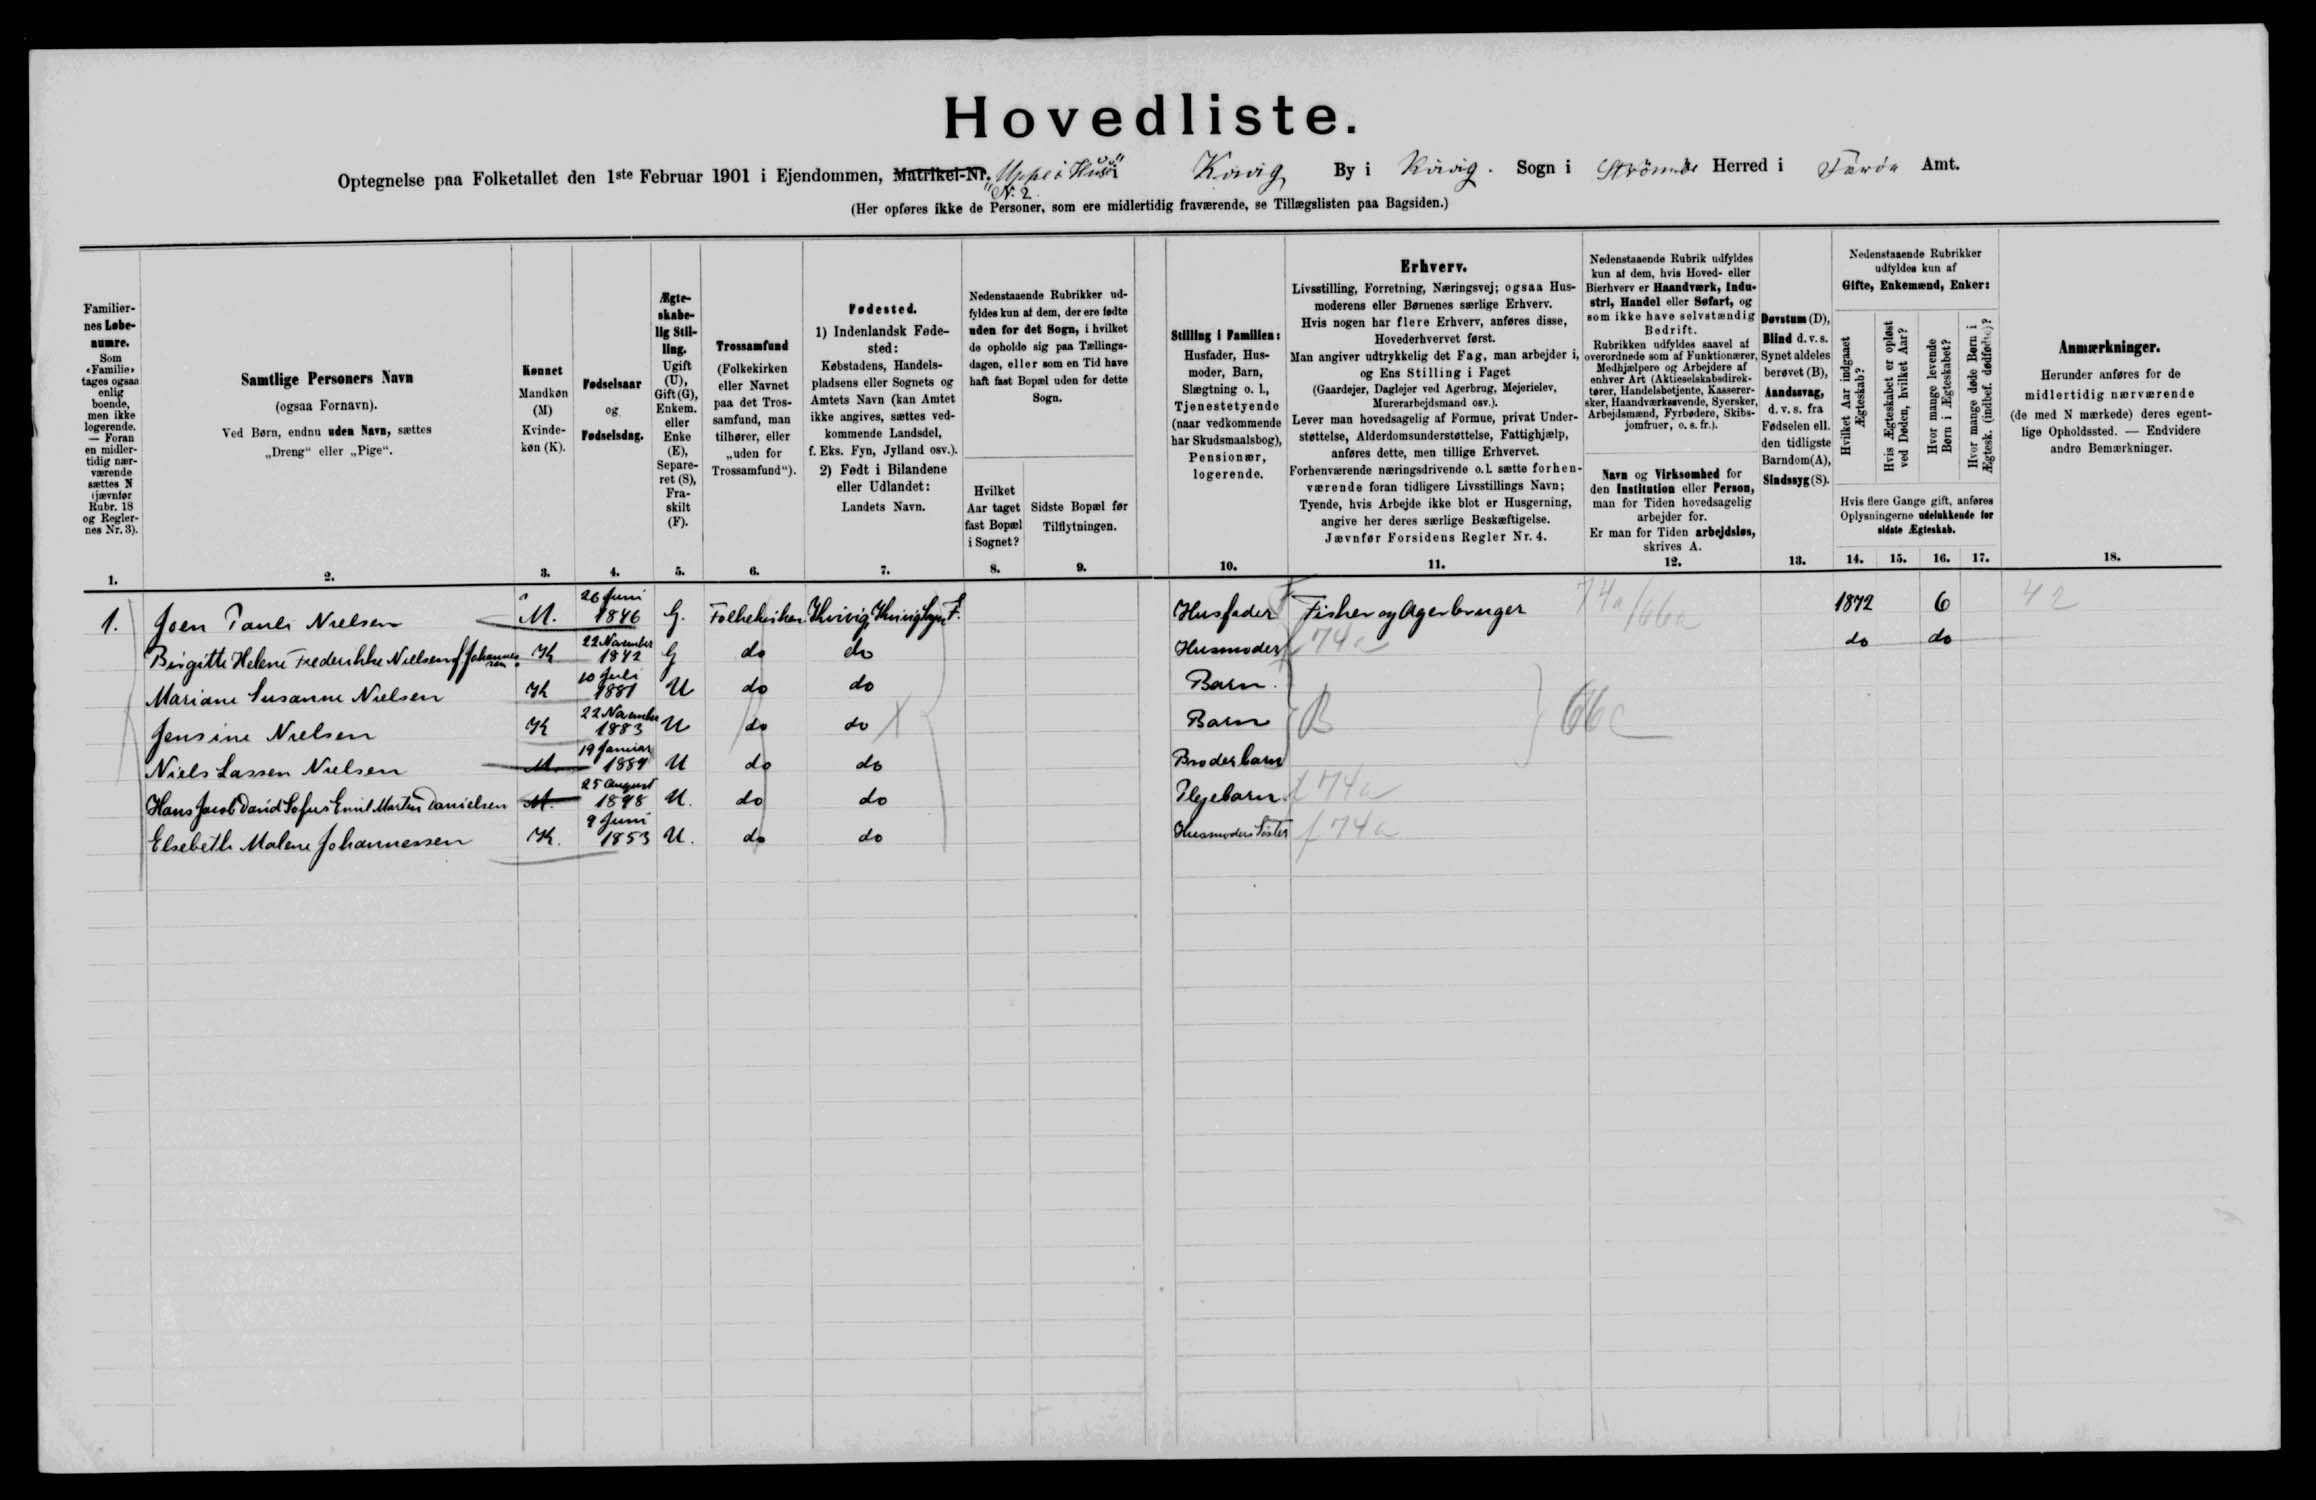 Hovedliste.
Optegnelse paa Folketallet den 1ste Februar 1901 i Ejendommen, Matrikel-Nr. "Uppe i Husi" Kvivig By i Kvivig. Sogn i Strömnös Herred i Færöe Amt.
N: 2.
(Her opføres ikke de Personer, som ere midlertidig fraværende, se Tillægslisten paa Bagsiden.)
Familiernes Løbenumre.
Som «Familie» tages ogsaa enlig boende, men ikke logerende. — Foran en midlertidig nærværende sættes N (jævnfør Rubr. 18 og Reglernes Nr. 3).
1.
Samtlige Personers Navn
(ogsaa Fornavn).
Ved Børn, endnu uden Navn, sættes
„Dreng“ eller „Pige“.
2.
Kønnet
Mandkøn (M)
Kvindekøn (K).
3.
Fødselsaar
og
Fødselsdag.
4.
Ægteskabelig Stilling.
Ugift (U), Gift (G), Enkem. eller Enke (E), Separeret (S), Fraskilt (F).
5.
Trossamfund
(Folkekirken eller Navnet paa det Trossamfund, man tilhører, eller „uden for Trossamfund“).
6.
Fødested.
1) Indenlandsk Fødested:
Købstadens, Handelspladsens eller Sognets og Amtets Navn (kan Amtet ikke angives, sættes vedkommende Landsdel, f. Eks. Fyn, Jylland osv.).
2) Født i Bilandene eller Udlandet:
Landets Navn.
7.
Nedenstaaende Rubrikker udfyldes kun af dem, der ere fødte uden for det Sogn, i hvilket de opholde sig paa Tællingsdagen, eller som en Tid have haft fast Bopæl uden for dette Sogn.
Hvilket Aar taget fast Bopæl i Sognet?
8.
Sidste Bopæl før Tilflytningen.
9.
Stilling i Familien:
Husfader, Husmoder, Barn, Slægtning o. l., Tjenestetyende (naar vedkommende har Skudsmaalsbog), Pensionær, logerende.
10.
Erhverv.
Livsstilling, Forretning, Næringsvej; ogsaa Husmoderens eller Børnenes særlige Erhverv.
Hvis nogen har flere Erhverv, anføres disse, Hovederhvervet først.
Man angiver udtrykkelig det Fag, man arbejder i, og Ens Stilling i Faget
(Gaardejer, Daglejer ved Agerbrug, Mejerielev, Murerarbejdsmand osv.).
Lever man hovedsagelig af Formue, privat Understøttelse, Alderdomsunderstøttelse, Fattighjælp, anføres dette, men tillige Erhvervet.
Forhenværende næringsdrivende o. l. sætte forhenværende foran tidligere Livsstillings Navn;
Tyende, hvis Arbejde ikke blot er Husgerning, angive her deres særlige Beskæftigelse.
Jævnfør Forsidens Regler Nr. 4.
11.
Nedenstaaende Rubrik udfyldes kun af dem, hvis Hoved- eller Bierhverv er Haandværk, Industri, Handel eller Søfart, og som ikke have selvstændig Bedrift.
Rubrikken udfyldes saavel af overordnede som af Funktionærer, Medhjælpere og Arbejdere af enhver Art (Aktieselskabsdirektører, Handelsbetjente, Kasserersker, Haandværkssvende, Syersker, Arbejdsmænd, Fyrbødere, Skibsjomfruer, o. s. fr.).
Navn og Virksomhed for den Institution eller Person, man for Tiden hovedsagelig arbejder for.
Er man for Tiden arbejdsløs, skrives A.
12.
Døvstum (D),
Blind d. v. s. Synet aldeles berøvet (B),
Aandssvag, d. v. s. fra Fødselen ell. den tidligste Barndom (A),
Sindssyg (S).
13.
Nedenstaaende Rubrikker udfyldes kun af
Gifte, Enkemænd, Enker:
Hvilket Aar indgaaet Ægteskab?
Hvis Ægteskabet er opløst ved Døden, hvilket Aar?
Hvor mange levende Børn i Ægteskabet?
Hvor mange døde Børn i Ægtesk. (indbef. dødfødte)?
Hvis flere Gange gift, anføres Oplysningerne udelukkende for sidste Ægteskab.
14. 15. 16. 17.
Anmærkninger.
Herunder anføres for de midlertidig nærværende (de med N mærkede) deres egentlige Opholdssted. — Endvidere andre Bemærkninger.
18.
1. Joen Pauli Nielsen M. 26 Juni 1846 G. Folkekirken Kvivig, Kvivig Sogn F. Husfader Fisker og Agerbruger 74a/66a 1872 6 42
Birgitte Helene Frederikke Nielsen f Johannessen K 22 November 1842 G do do Husmoder f 74a do do
Mariane Susanne Nielsen K 10 Juli 1881 U do do Barn.
Jensine Nielsen K 22 November 1883 U do do Barn B 66c
Niels Lassen Nielsen M. 19 Januar 1884 U do do Broderbarn
Hans Jacob David Sofus Emil Martin Danielsen M. 25 August 1898 U. do do Plejebarn f 74a
Elsebeth Malene Johannessen K. 9 Juni 1853 U. do do Husmoders Söster f 74a